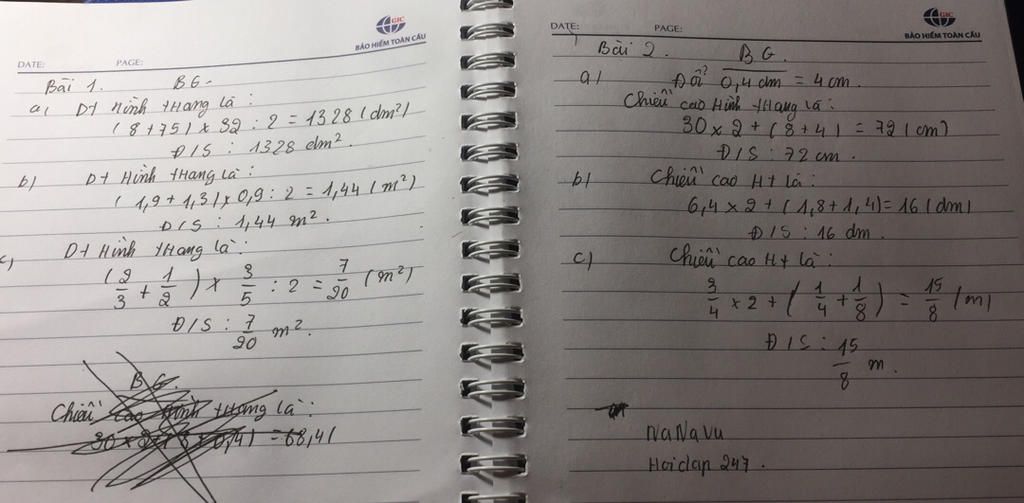 GIC
BẢO HIỂM TOÀN CẦU
DATE: PAGE:
Bài 1. BG.
a) Dt Hình thang là:
(8 + 75) × 32 : 2 = 1328 (dm²)
Đ/S : 1328 dm².
b) Dt Hình thang là:
(1,9 + 1,3) × 0,9 : 2 = 1,44 (m²)
Đ/S : 1,44 m².
c) Dt Hình thang là:
(2/3 + 1/2) × 3/5 : 2 = 7/20 (m²)
Đ/S : 7/20 m².
BG.
Chiều cao Hình thang là:
GIC
BẢO HIỂM TOÀN CẦU
DATE: PAGE:
Bài 2. BG.
a) Đổi 0,4 dm = 4 cm.
Chiều cao Hình thang là:
30 × 2 + (8 + 4) = 72 (cm)
Đ/S : 72 cm.
b) Chiều cao Ht là:
6,4 × 2 + (1,8 + 1,4) = 16 (dm)
Đ/S : 16 dm.
c) Chiều cao Ht là:
3/4 × 2 + (1/4 + 1/8) = 15/8 (m)
Đ/S : 15/8 m.
NaNaVu
Hoidap 247.